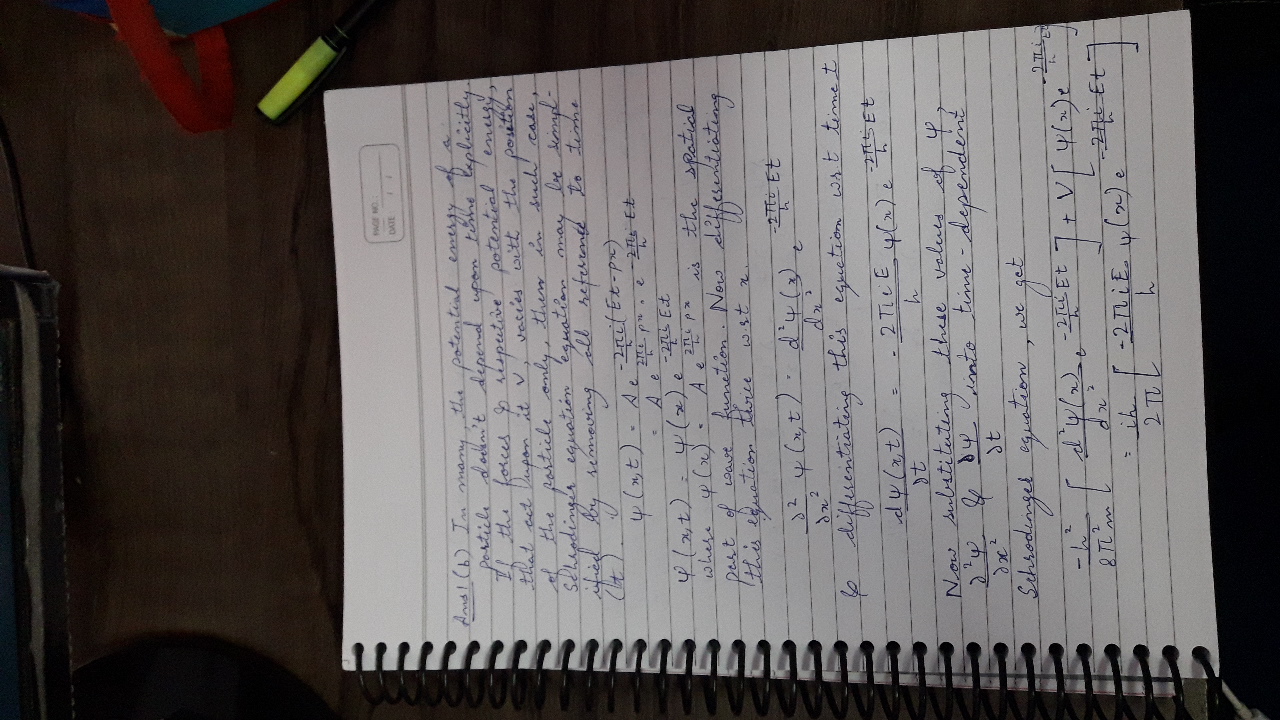 PAGE NO.:
DATE / /
Ans 1 (b) In many, the potential energy of a
particle doesn't depend upon time explicitly.
If the forces & respective potential energy,
that act upon it V, varies with the position
of the particle only, then in such case,
Schrodinger equation equation may be simpl-
ified by removing all reference to time
(t).
ψ(x,t) = A e^{-2πi/h (Et-px)}
= A e^{2πi/h px} · e^{-2πi/h Et}
ψ(x,t) = ψ(x) e^{-2πi/h Et}
where ψ(x) = A e^{2πi/h px} is the spatial
part of wave function. Now differentiating
this equation twice w.r.t x.
∂²/∂x² ψ(x,t) = d²ψ(x)/dx² e^{-2πi/h Et}
& differentiating this equation w.r.t time t
dψ(x,t)/∂t = -2πiE/h ψ(x) e^{-2πi/h Et}
Now substituting these values of ψ,
∂²ψ/∂x² & ∂ψ/∂t into time-dependent
Schrodinger equation, we get
-h²/8π²m [d²ψ(x)/dx² e^{-2πi/h Et}] + V[ψ(x) e^{-2πi/h Et}]
= ih/2π [-2πiE/h ψ(x) e^{-2πi/h Et}]